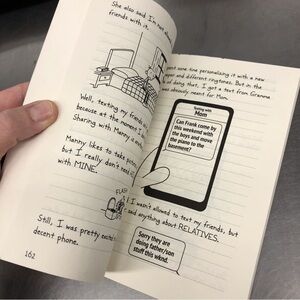 She also said I'm not
friends with it.
Well, texting my friends
because at the moment I
Sharing with Manny
Manny likes to take
but I really don't need
with MINE.
FLASH
Still, I was pretty excited
decent phone.
162
spent some time personalizing it with a new
and different ringtones. But in the
of doing that, I got a text from Gramma
was obviously meant for Mom.
Texting with
Mom
Can Frank come by
this weekend with
the boys and move
the piano to the
basement?
I wasn't allowed to text my friends, but
said anything about RELATIVES.
Sorry they are
doing father/son
stuff this wknd.